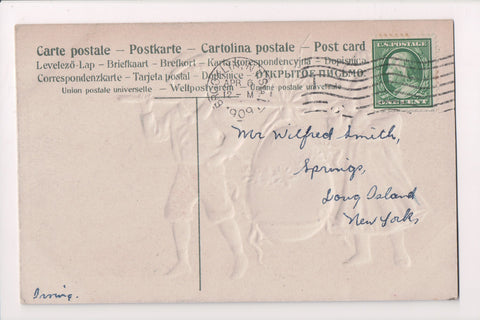 Carte postale – Postkarte – Cartolina postale – Post card
Levelező-Lap – Briefkaart – Brefkort – Karta korespondencyjna – Dopisnice
Correspondenzkarte – Tarjeta postal – Dopisnica – ОТКРЫТОЕ ПИСЬМО.
Union postale universelle – Weltpostverein – Unione postale universale
U.S. POSTAGE
APR
12 – M
1909
Mr Wilfred Smith,
Springs,
Long Island
New York,
Irving.